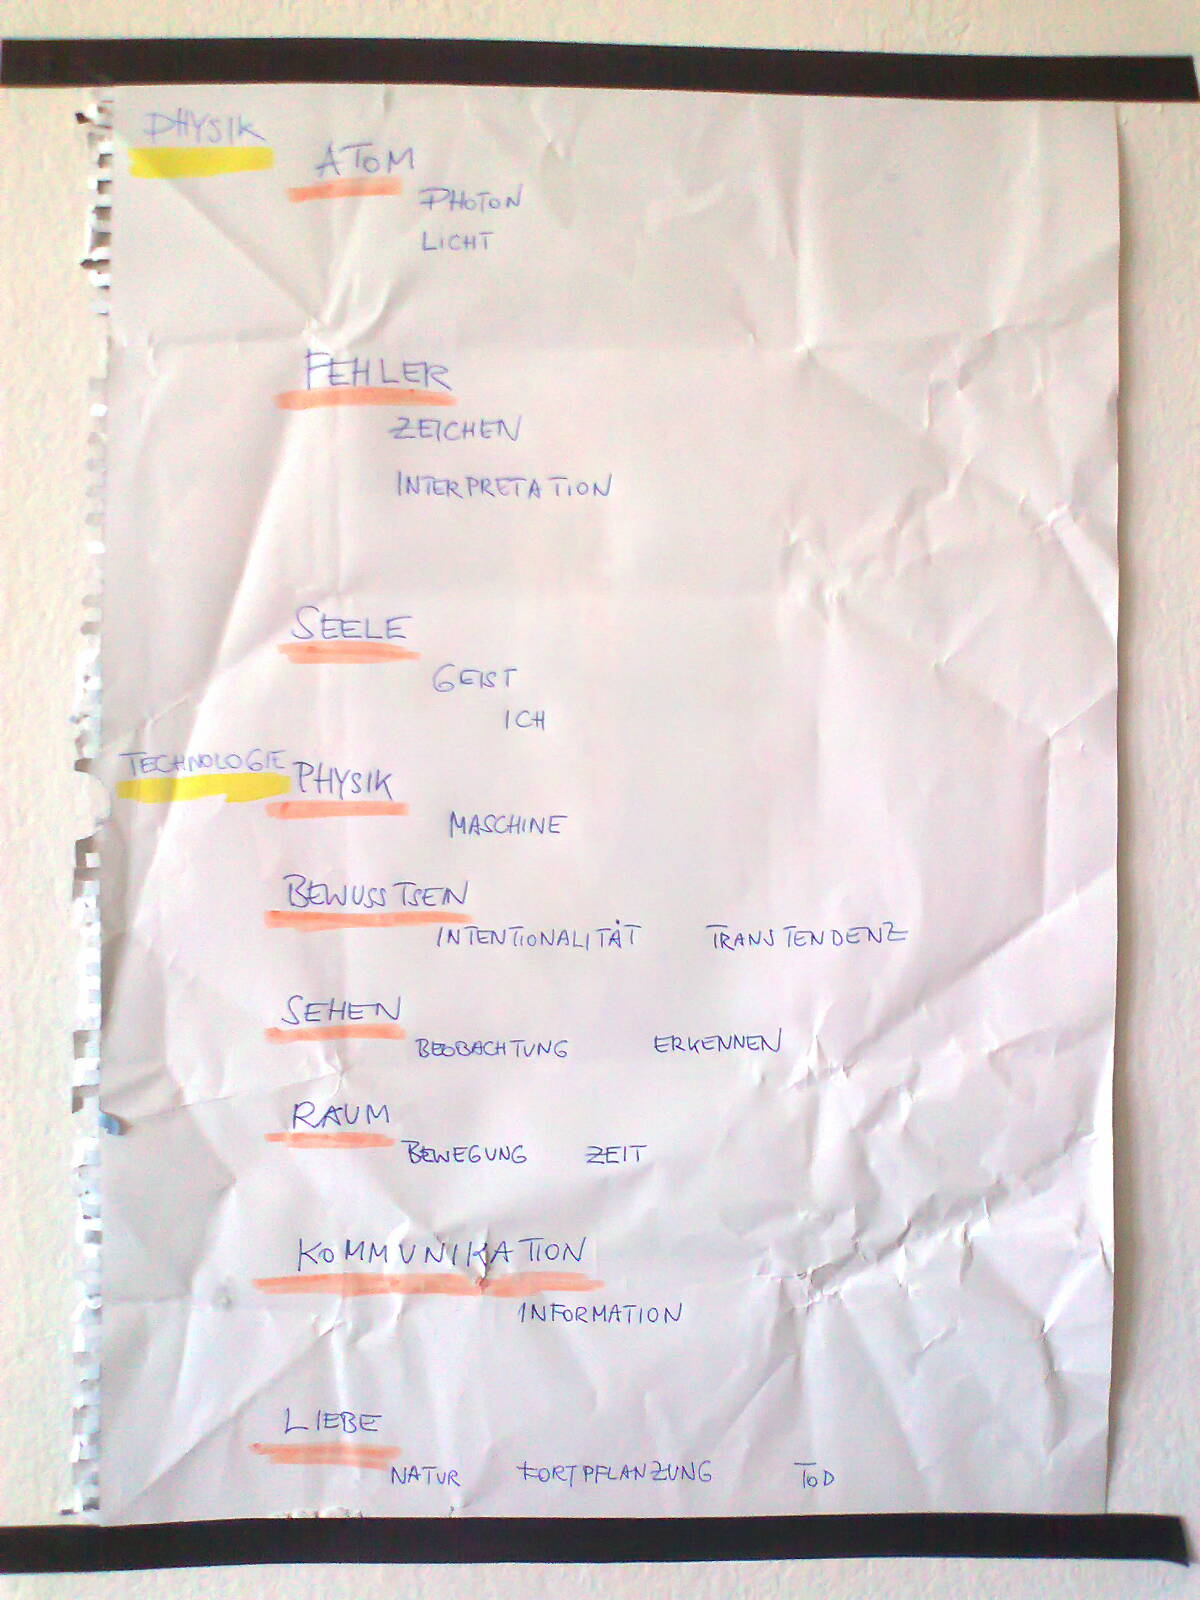 PHYSIK
ATOM
PHOTON
LICHT
FEHLER
ZEICHEN
INTERPRETATION
SEELE
GEIST
ICH
TECHNOLOGIE
PHYSIK
MASCHINE
BEWUSSTSEIN
INTENTIONALITÄT TRANSTENDENZ
SEHEN
BEOBACHTUNG ERKENNEN
RAUM
BEWEGUNG ZEIT
KOMMUNIKATION
INFORMATION
LIEBE
NATUR FORTPFLANZUNG TOD